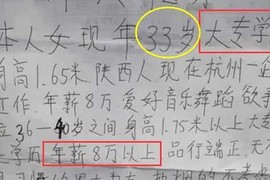 本人女现年33岁大专学
身高1.65米陕西人现在杭州一
工作年薪8万爱好音乐舞蹈欲寻
36-40岁之间身高1.75米以上大
学历年薪8万以上品行端正无